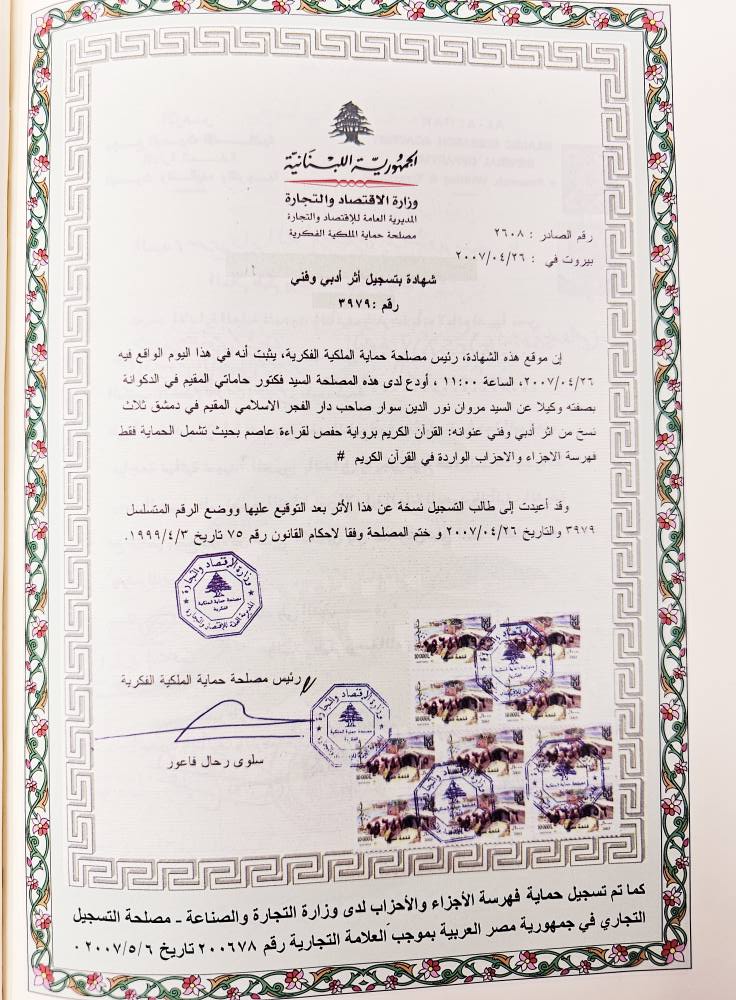 الجمهورية اللبنانية
وزارة الاقتصاد والتجارة
المديرية العامة للاقتصاد والتجارة
مصلحة حماية الملكية الفكرية
رقم الصادر : ٢٦٠٨
بيروت في : ٢٠٠٧/٠٤/٢٦
شهادة بتسجيل أثر أدبي وفني
رقم :٣٩٧٩
إن موقع هذه الشهادة، رئيس مصلحة حماية الملكية الفكرية، يثبت أنه في هذا اليوم الواقع فيه
٢٠٠٧/٠٤/٢٦، الساعة ١١:٠٠، أودع لدى هذه المصلحة السيد فكتور حاماتي المقيم في الدكوانة
بصفته وكيلا عن السيد مروان نور الدين سوار صاحب دار الفجر الاسلامي المقيم في دمشق ثلاث
نسخ من اثر أدبي وفني عنوانه: القرآن الكريم برواية حفص لقراءة عاصم بحيث تشمل الحماية فقط
فهرسة الاجزاء والاحزاب الواردة في القرآن الكريم #
وقد أعيدت إلى طالب التسجيل نسخة عن هذا الأثر بعد التوقيع عليها ووضع الرقم المتسلسل
٣٩٧٩ والتاريخ ٢٠٠٧/٠٤/٢٦ و ختم المصلحة وفقا لاحكام القانون رقم ٧٥ تاريخ ١٩٩٩/٤/٣.
وزارة الإقتصاد والتجارة
مصلحة حماية الملكية
الفكرية
رئيس مصلحة حماية الملكية الفكرية
سلوى رحال فاعور
كما تم تسجيل حماية فهرسة الأجزاء والأحزاب لدى وزارة التجارة والصناعة - مصلحة التسجيل
التجاري في جمهورية مصر العربية بموجب العلامة التجارية رقم ٢٠٠٦٧٨ تاريخ ٢٠٠٧/٥/٦ .